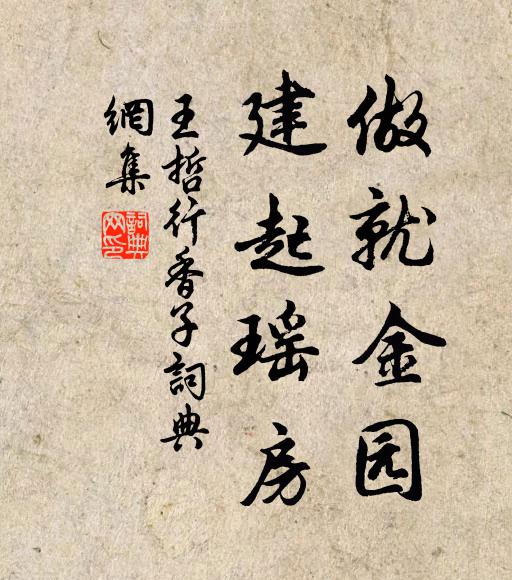 做就金园
建起瑶房
王哲行香子词典
網集
詞典网印